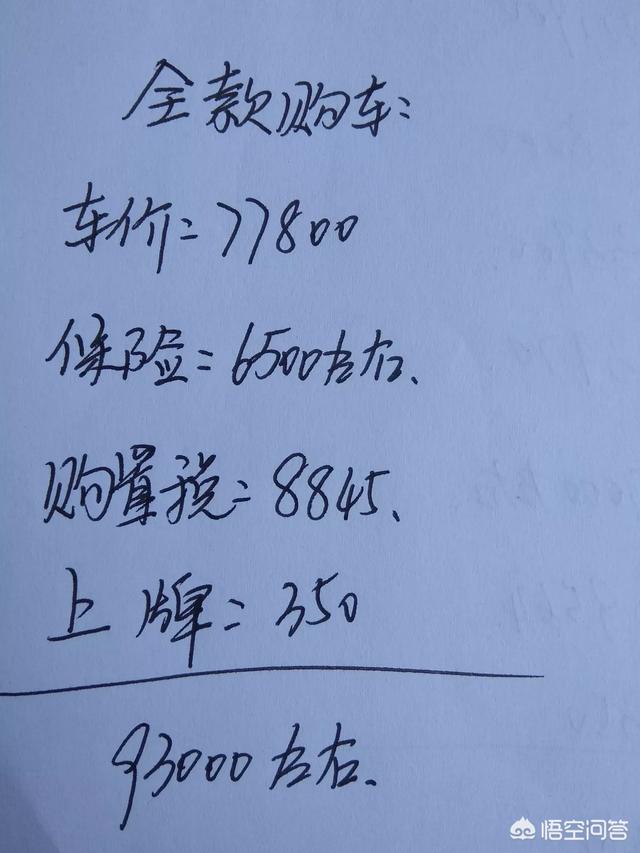 全款购车:
车价=77800
保险=6500左右、
购置税=8845、
上牌=350
93000左右、
悟空问答